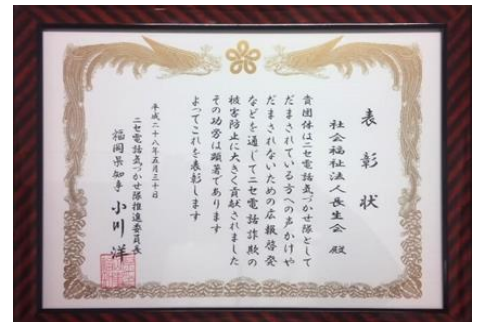 表彰状
社会福祉法人長生会 殿
貴団体はニセ電話気づかせ隊として
だまされている方への声かけや
だまされないための広報啓発
などを通じてニセ電話詐欺の
被害防止に大きく貢献されました
その功労は顕著であります
よってこれを表彰します
平成二十八年五月三十日
ニセ電話気づかせ隊推進委員長
福岡県知事 小川 洋